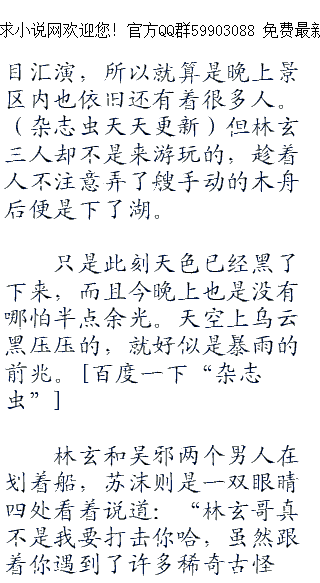 求小说网欢迎您！官方QQ群59903088 免费最新
目汇演，所以就算是晚上景
区内也依旧还有着很多人。
（杂志虫天天更新）但林玄
三人却不是来游玩的，趁着
人不注意弄了艘手动的木舟
后便是下了湖。
只是此刻天色已经黑了
下来，而且今晚上也是没有
哪怕半点余光。天空上乌云
黑压压的，就好似是暴雨的
前兆。[百度一下“杂志
虫”]
林玄和吴邪两个男人在
划着船，苏沫则是一双眼睛
四处看着说道：“林玄哥真
不是我要打击你哈，虽然跟
着你遇到了许多稀奇古怪